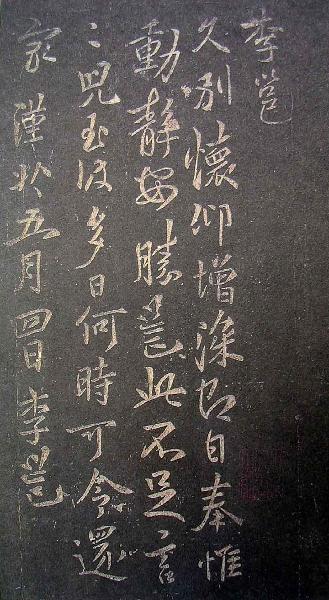 李邕
久別懷仰增深即日奉惟
動靜安勝邕此不足言
兒至彼多日何時可令還
家謹五月四日李邕